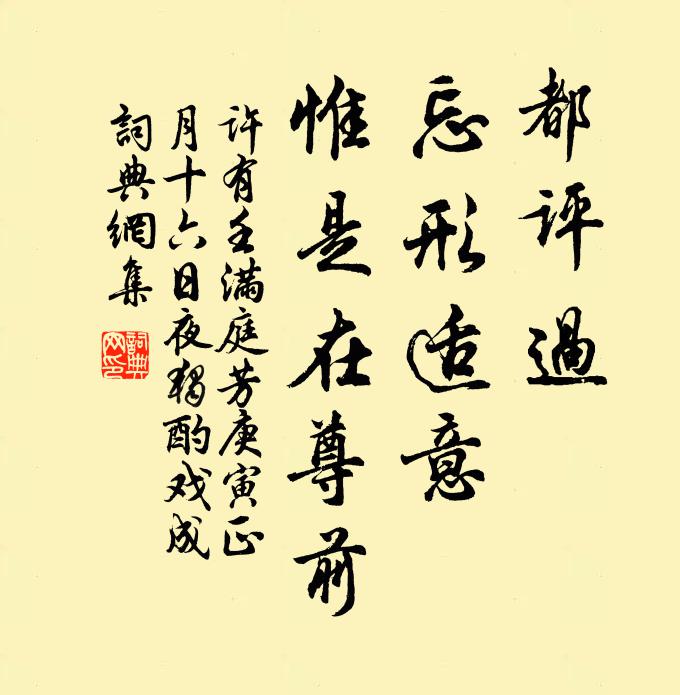 都评過
忘形适意
惟是在尊前
许有壬满庭芳庚寅正
月十六日夜独酌戏成
詞典網集
詞典
网印